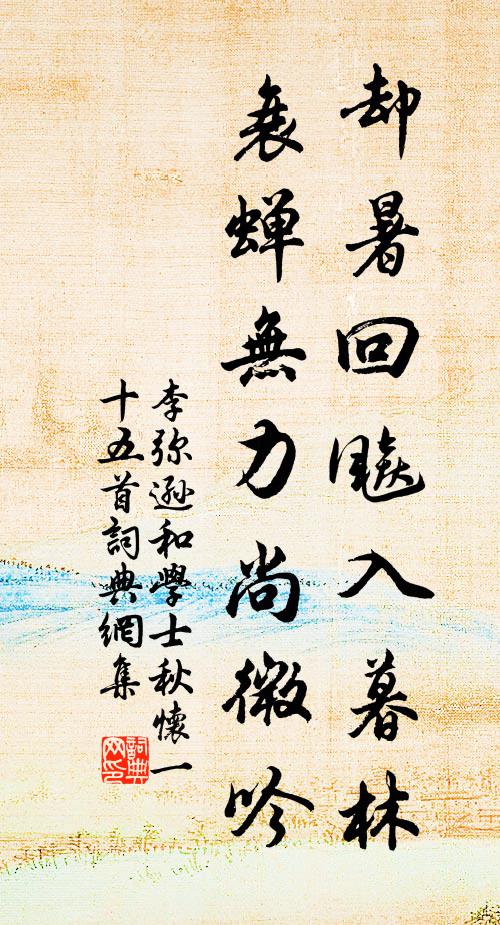 却暑回飈入暮林
衰蟬無力尚微吟
李弥遜和學士秋懷一
十五首詞典網集
詞典
网印